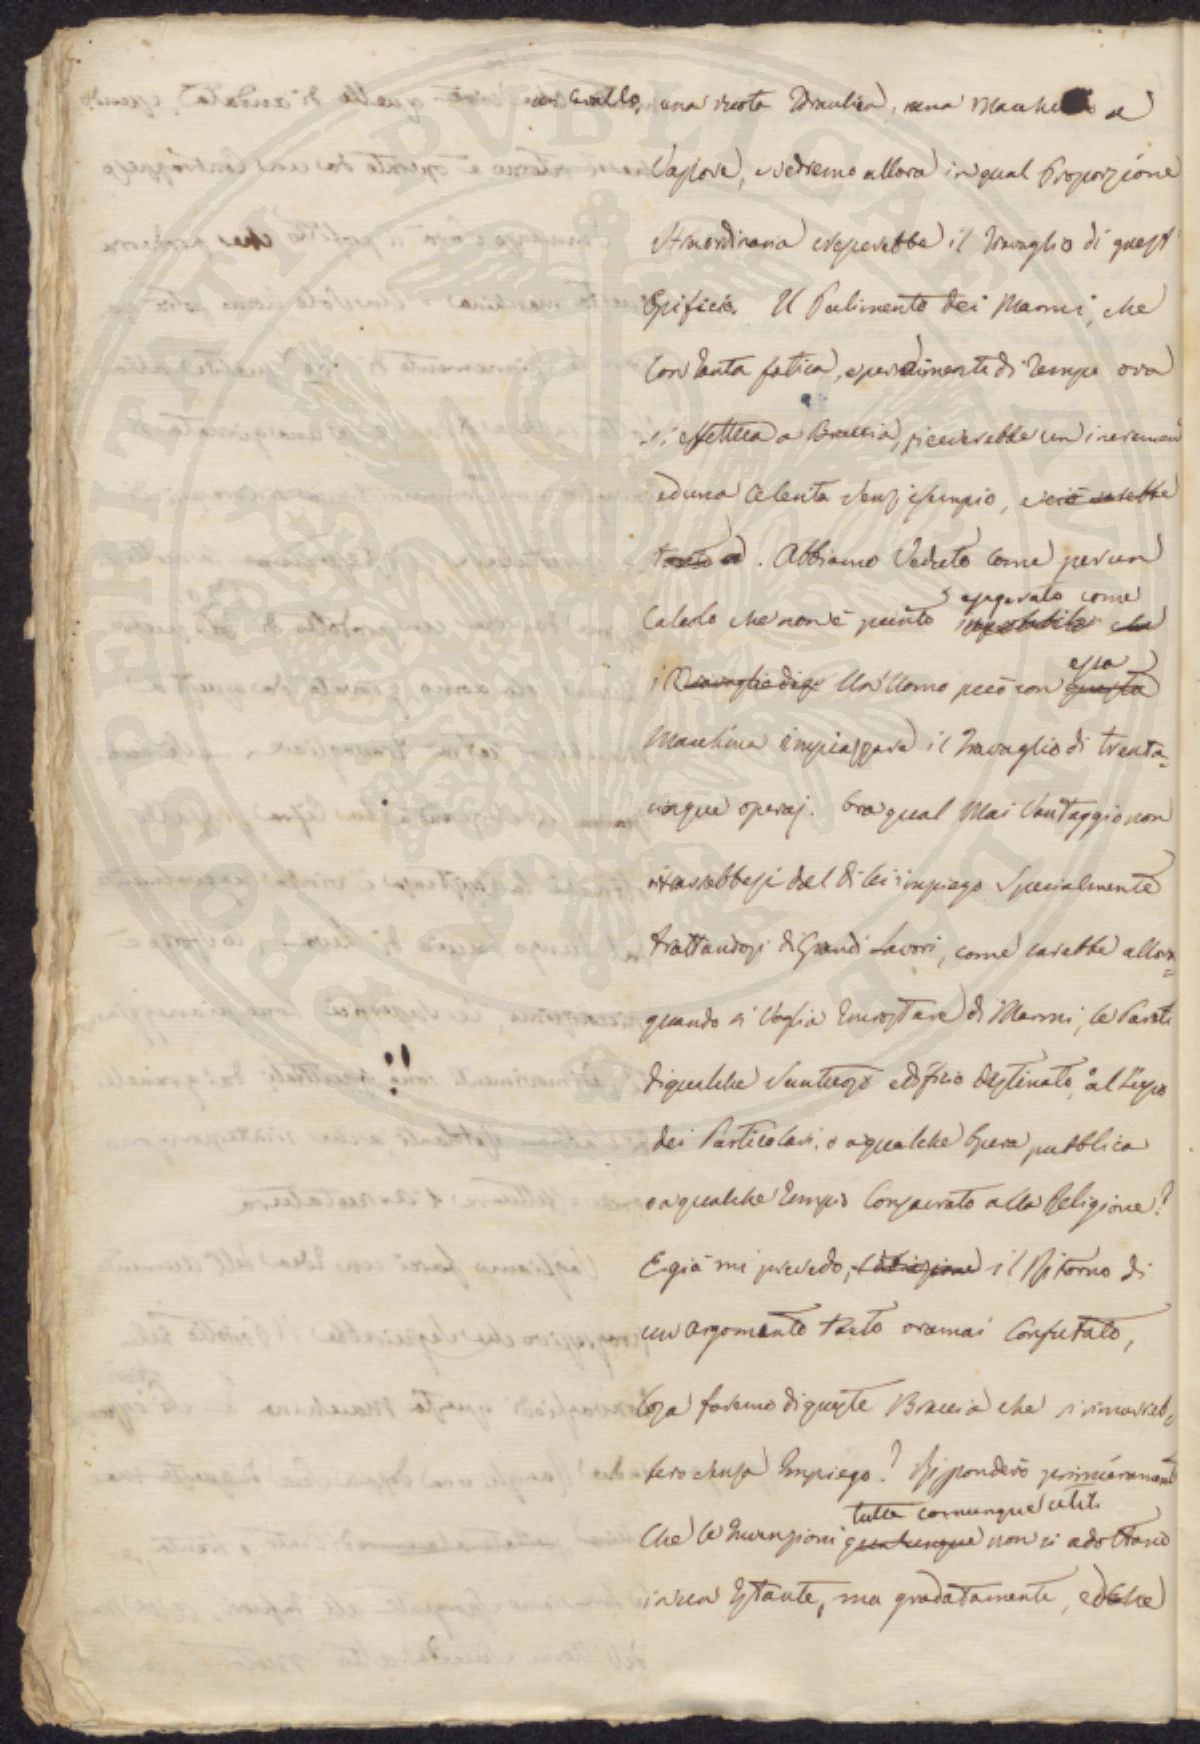 un Cavallo, una ruota Idraulica, una Macchina a
Vapore, e vedremo allora in qual Proporzione
Straordinaria crescerebbe il Travaglio di quest'
Opificio. Il Pulimento dei Marmi, che
con tanta fatica, e perdimento di Tempo ora
si effettua a Braccia, riceverebbe un incremento
ed una Celerità senz'esempio, e ciò sarebbe
tanto a. Abbiamo Veduto come per un
Calcolo che non è punto esagerato come
che
i Travaglio di Un Uomo può con essa questa
Macchina rimpiazzare il Travaglio di trenta=
cinque operaj. Ora qual Mai Vantaggio non
ritrarrebbesi del di lei impiego Specialmente
trattandosi di Grandi Lavori, come sarebbe allora=
quando si Voglia Incrostare di Marmi, le Pareti
di qualche Suntuoso edificio destinato, al Lusso
dei Particolari, o a qualche Opera pubblica
o a qualche Tempio Consacrato alla Religione?
E già mi prevedo, l'obiezione il Ritorno di
un argomento tanto oramai Confutato,
Cosa faremo di queste Braccia che si rimarreb=
bero senza Impiego? Risponderò primieramente
tutte comunque utili
Che le Invenzioni qualunque non si adottano
in un Istante, ma gradatamente, ed che